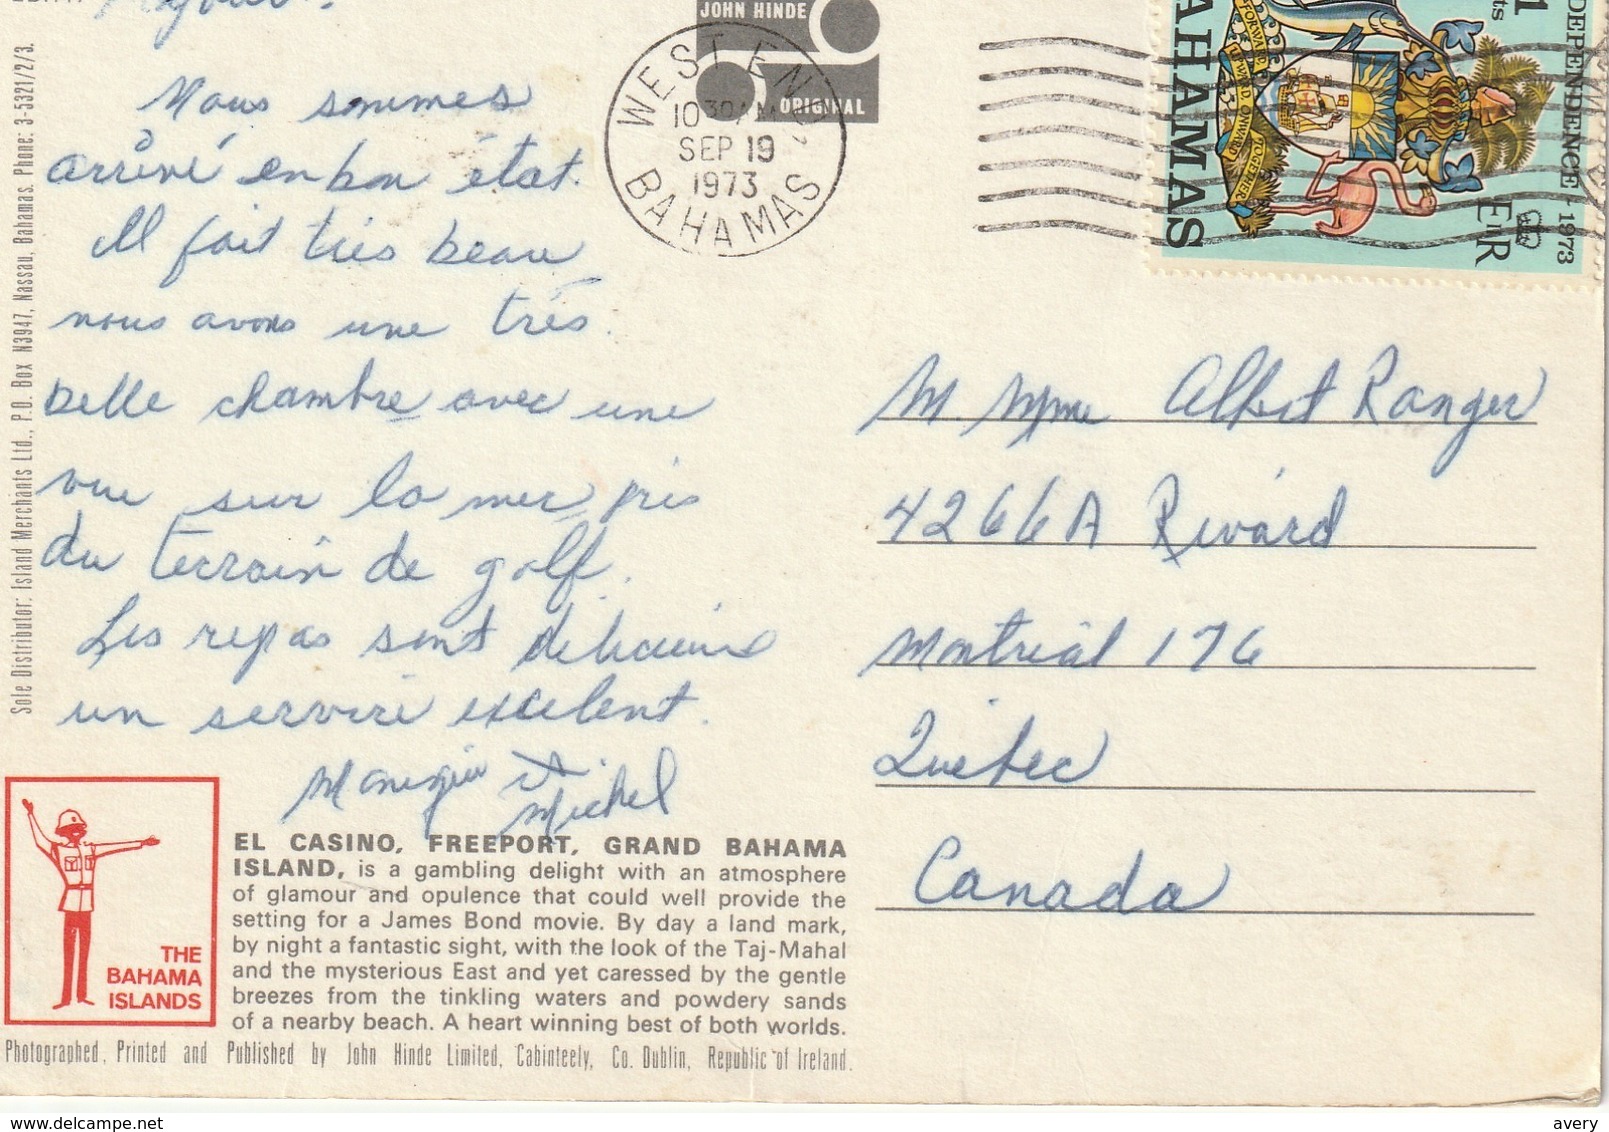 JOHN HINDE
ORIGINAL
WEST END,
10 30 AM
SEP 19
1973
BAHAMAS
BAHAMAS
INDEPENDENCE - 1973
EIIR
FORWARD UPWARD ONWARD TOGETHER
Sole Distributor: Island Merchants Ltd., P.O. Box N3947, Nassau, Bahamas. Phone: 3-5321/2/3.
Nous sommes
arrivé en bon état.
Il fait très beau
nous avons une très
belle chambre avec une
vue sur la mer, pris
du terrain de golf.
Les repas sont
un service excelent.
et
Michel
M. Mme Albert Ranger
4266A Rivard
Montréal 176
Québec
Canada
THE
BAHAMA
ISLANDS
EL CASINO, FREEPORT, GRAND BAHAMA
ISLAND, is a gambling delight with an atmosphere
of glamour and opulence that could well provide the
setting for a James Bond movie. By day a land mark,
by night a fantastic sight, with the look of the Taj-Mahal
and the mysterious East and yet caressed by the gentle
breezes from the tinkling waters and powdery sands
of a nearby beach. A heart winning best of both worlds.
Photographed, Printed and Published by John Hinde Limited, Cabinteely, Co. Dublin, Republic of Ireland.
www.delcampe.net
avery